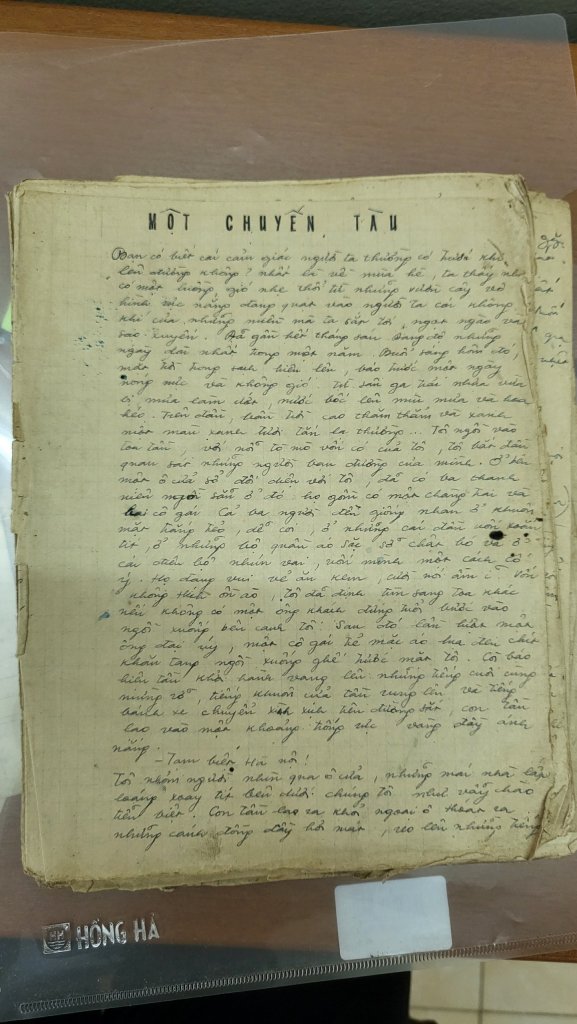 MỘT CHUYẾN TÀU
Bạn có biết cái cảm giác người ta thường có trước khi
lên đường không? nhất là về mùa hè, ta thấy như
có một luồng gió nhẹ thổi từ những vườn cây vô
hình rực nắng đang quạt vào người ta cái không
khí của những miền mà ta sắp tới, ngọt ngào và
xao xuyến. Đã gần hết tháng sáu đang độ những
ngày dài nhất trong một năm. Buổi sáng hôm đó,
mặt trời trong sạch hiện lên, báo trước một ngày
nóng nực và không gió. Từ sân ga hãy nhòa vừa
bị mưa làm ướt, nước bốc lên mùi mưa và hoa
héo. Trên đầu, bầu trời cao thăm thẳm và xanh
một màu xanh tươi tắn lạ thường... Tôi ngồi vào
toa tàu, với nỗi tò mò vốn có của tôi, tôi bắt đầu
quan sát những người bạn đường của mình. Ở bên
một ô cửa sổ đối diện với tôi, đã có ba thanh
niên ngồi sẵn ở đó: họ gồm có một chàng trai và
hai cô gái. Cả ba người đều giống nhau ở khuôn
mặt trắng trẻo, dễ coi, ở những cái đầu uốn xoăn
tít, ở những bộ quần áo sặc sỡ chật bó và ở
cái điệu bộ nhún vai, uốn mình một cách cố
ý. Họ đang vui vẻ ăn kem, cười nói ầm ĩ. Vốn
không thích ồn ào, tôi đã định tìm sang toa khác
nếu không có một ông khách đứng tuổi bước vào
ngồi xuống bên cạnh tôi. Sau đó lần lượt một
ông đại úy, một cô gái trẻ mặc áo lụa đen chít
khăn tang ngồi xuống ghế trước mặt tôi. Còi báo
hiệu tàu khởi hành vang lên những tiếng cuối cùng
mừng rỡ, tiếng khuôn cửa tàu rung lên và tiếng
bánh xe chuyển xình xịch trên đường sắt, con tàu
lao vào một khoảng trống rực vàng đầy ánh
nắng.
– Tạm biệt Hà nội!
Tôi nhóm người nhìn qua ô cửa, những mái nhà lấp
loáng xoay tít bên dưới chúng tôi như vẫy chào
tiễn biệt. Con tàu lao ra khỏi ngoại ô thoát ra
những cánh đồng đầy hơi mát, reo lên những tiếng
HỒNG HÀ